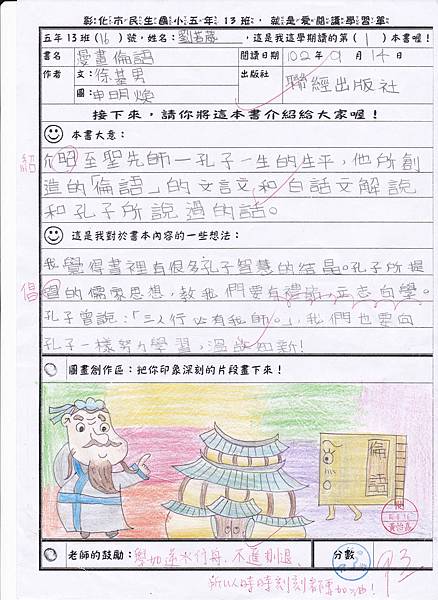 彰化市民生國小五年13班，就是愛閱讀學習單
五年13班(16)號，姓名：劉 ，這是我這學期讀的第(1)本書喔！
書名 漫畫倫語 閱讀日期 102年9月14日
作者 文：徐基男 圖：申明煥 出版社 聯經出版社
接下來，請你將這本書介紹給大家喔！
本書大意：
紹
介昭至聖先師－孔子一生的生平，他所創
造的「倫語」的文言文和白話文解說
和孔子所說過的話。
這是我對於書本內容的一些想法：
我覺得書裡有很多孔子智慧的結晶。孔子所提
倡
冒的儒家思想，教我們要有禮節，立志向學。
孔子曾說：「三人行必有我師。」，我們也要向
孔子一樣努力學習，溫故知新！
圖畫創作區：把你印象深刻的片段畫下來！
倫語
老師的鼓勵： 學如逆水行舟，不進則退， 分數 93
所以時時刻刻都要加油！